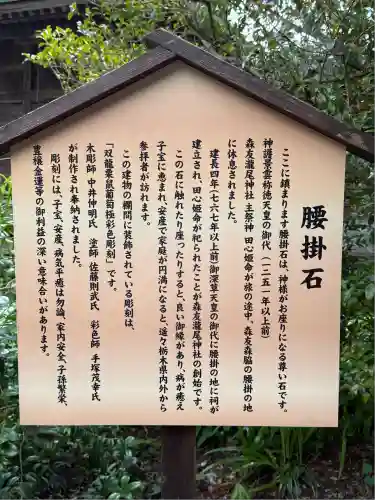 腰掛石
ここに鎮まります腰掛石は、神様がお座りになる尊い石です。
神護景雲称徳天皇の御代（一二五一年以上前）
森友瀧尾神社主祭神 田心姫命が旅の途中、森友森脇の腰掛の地
に休息されました。
建長四年（七六七年以上前）御深草天皇の御代に腰掛の地に祠が
建立され、田心姫命が祀られたことが森友瀧尾神社の創始です。
この石に触れたり座ったりすると、良い御縁があり、病が癒え
子宝に恵まれ、安産で家庭が円満になると、遥々栃木県内外から
参拝者が訪れます。
この建物の欄間に装飾されている彫刻は、
「双龍粟鼠葡萄極彩色彫刻」です。
木彫師 中井伸明氏 塗師 佐藤則武氏、彩色師 手塚茂幸氏、
が制作され奉納されました。
彫刻には、子宝、安産、病気平癒は勿論、家内安全、子孫繁栄、
豊穣、金運等の御利益の深い意味合いがあります。